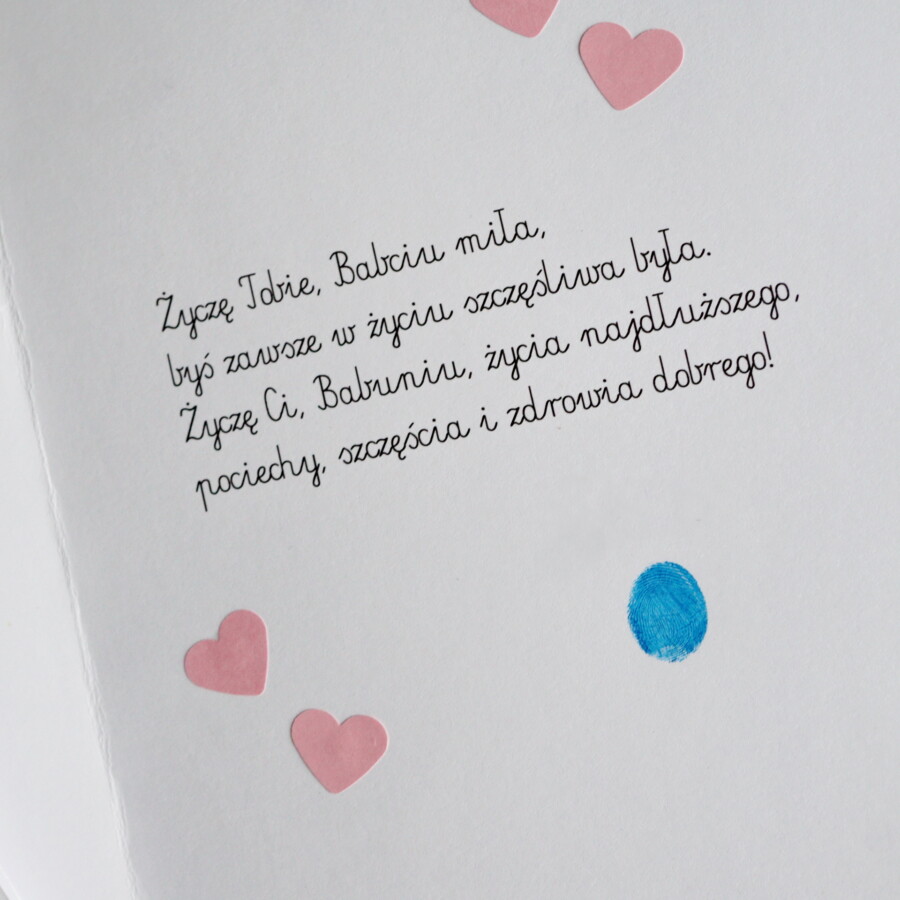 Życzę Tobie, Babciu miła,
byś zawsze w życiu szczęśliwa była.
Życzę Ci, Babuniu, życia najdłuższego,
pociechy, szczęścia i zdrowia dobrego!